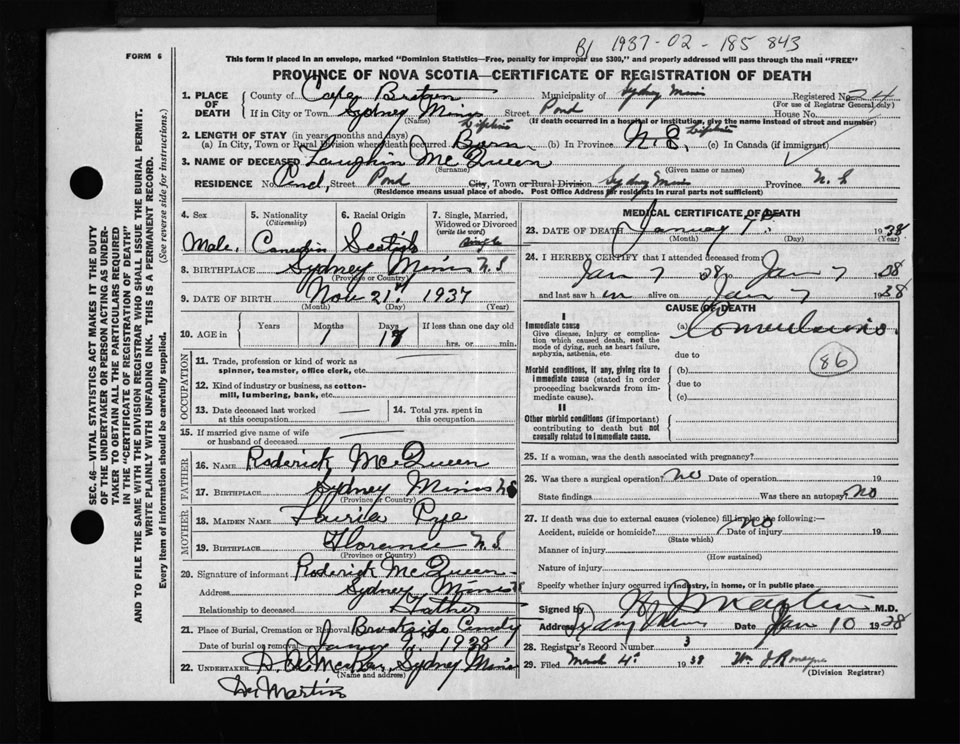 B1 1937-02-185 843
FORM 6
This form if placed in an envelope, marked "Dominion Statistics—Free, penalty for improper use $300," and properly addressed will pass through the mail "FREE"
PROVINCE OF NOVA SCOTIA—CERTIFICATE OF REGISTRATION OF DEATH
SEC. 46—VITAL STATISTICS ACT MAKES IT THE DUTY
OF THE UNDERTAKER OR PERSON ACTING AS UNDER-
TAKER TO OBTAIN ALL THE PARTICULARS REQUIRED
IN THE "CERTIFICATE OF REGISTRATION OF DEATH"
AND TO FILE THE SAME WITH THE DIVISION REGISTRAR WHO SHALL ISSUE THE BURIAL PERMIT.
WRITE PLAINLY WITH UNFADING INK. THIS IS A PERMANENT RECORD.
Every item of information should be carefully supplied. (See reverse side for instructions.)
1. PLACE OF DEATH County of Cape Breton Municipality of Sydney Mines Registered No. 24
(For use of Registrar General only)
If in City or Town Sydney Mines Street Pond House No.
(Name) (If death occurred in a hospital or institution, give the name instead of street and number)
2. LENGTH OF STAY (in years, months and days)
(a) In City, Town or Rural Division where death occurred Born Lifetime (b) In Province N.S. Lifetime (c) In Canada (if immigrant)
3. NAME OF DECEASED Laughin McQueen
(Surname) (Given name or names)
RESIDENCE No. Pond Street Pond City, Town or Rural Division Sydney Mines Province N.S
(Residence means usual place of abode. Post Office Address for residents in rural parts not sufficient)
4. Sex 5. Nationality 6. Racial Origin 7. Single, Married,
(Citizenship) Widowed or Divorced
(write the word)
Male. Canadian Scotish single
8. BIRTHPLACE Sydney Mines N.S
(Province or Country)
9. DATE OF BIRTH Nov 21st 1937
(Month) (Day) (Year)
10. AGE in Years Months Days If less than one day old
1 18 hrs. or min.
OCCUPATION
11. Trade, profession or kind of work as
spinner, teamster, office clerk, etc.
12. Kind of industry or business, as cotton-
mill, lumbering, bank, etc.
13. Date deceased last worked
at this occupation —
14. Total yrs. spent in
this occupation.
15. If married give name of wife
or husband of deceased
FATHER
16. NAME Roderick McQueen
17. BIRTHPLACE Sydney Mines N.S
(Province or Country)
MOTHER
18. MAIDEN NAME Pye
19. BIRTHPLACE Florence N.S
(Province or Country)
20. Signature of informant Roderick McQueen
Address Sydney Mines N.S
Relationship to deceased Father
21. Place of Burial, Cremation or Removal Brookside Cemetery
Date of burial or removal 1938
22. UNDERTAKER Sydney Mines
(Name and address)
Dr Martin
MEDICAL CERTIFICATE OF DEATH
23. DATE OF DEATH January 7th 1938
(Month) (Day) (Year)
24. I HEREBY CERTIFY that I attended deceased from
Jan 7 38 to Jan 7 1938
and last saw him alive on Jan 7 1938
CAUSE OF DEATH
I
Immediate cause (a) Convulsions.
Give disease, injury or complica-
tion which caused death, not the
mode of dying, such as heart failure,
asphyxia, asthenia, etc.
due to
86
Morbid conditions, if any, giving rise to
immediate cause (stated in order
proceeding backwards from im-
mediate cause).
(b)
due to
(c)
II
Other morbid conditions (if important)
contributing to death but not
causally related to immediate cause.
25. If a woman, was the death associated with pregnancy?
26. Was there a surgical operation? no Date of operation 19
State findings Was there an autopsy? No
27. If death was due to external causes (violence) fill in also the following:—
Accident, suicide or homicide? no Date of injury 19
(State which)
Manner of injury
(How sustained)
Nature of injury
Specify whether injury occurred in industry, in home, or in public place
Signed by Martin M.D.
Address Sydney Mines Date Jan 10 1938
28. Registrar's Record Number 3
29. Filed March 4th 1938
(Division Registrar)